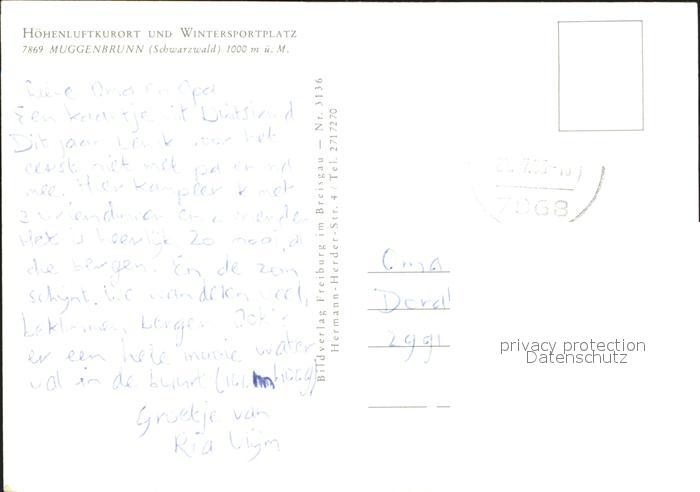 HÖHENLUFTKURORT UND WINTERSPORTPLATZ
7869 MUGGENBRUNN (Schwarzwald) 1000 m ü. M.
Lieve Oma en Opa
Een kaartje uit Duitsland
Dit jaar ben ik voor het
eerst niet met pa en ma
mee. Hier kampeer ik met
2 vriendinnen en vrienden
Het is heerlijk zo mooi, al
die bergen. En de zon
schijnt. We wandelen veel,
beklimmen bergen. Ook is
er een hele mooie water
val in de buurt
Groetje van
Ria Lijm
Bildverlag Freiburg im Breisgau — Nr. 3136
Hermann-Herder-Str. 4 / Tel. 2717270
Oma
2991
privacy protection
Datenschutz